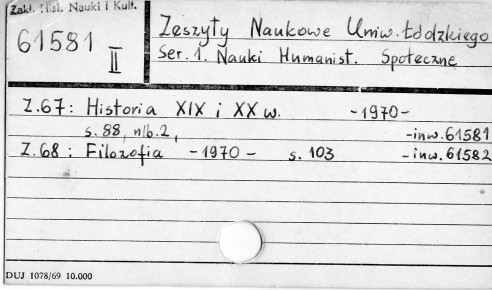 Zakł. Hist. Nauki i Kult.
61581
II
Zeszyty Naukowe Uniw. Łódzkiego
Ser. 1. Nauki Humanist. Społeczne
Z.67: Historia XIX i XX w. -1970-
s. 88, nlb. 2, -inw. 61581
Z.68: Filozofia -1970- s. 103 -inw. 61582
DUJ 1078/69 10.000